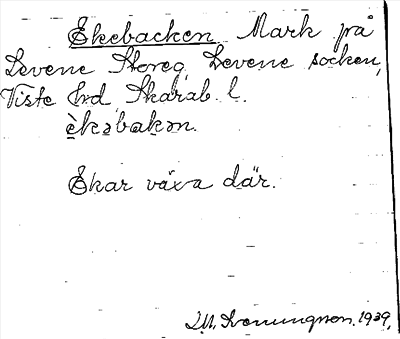 Ekebacken Mark på
Levene Storeg, Levene socken,
Viste hrd, Skarab. l.
èkəbakən.
Ekar växa där.
1939,